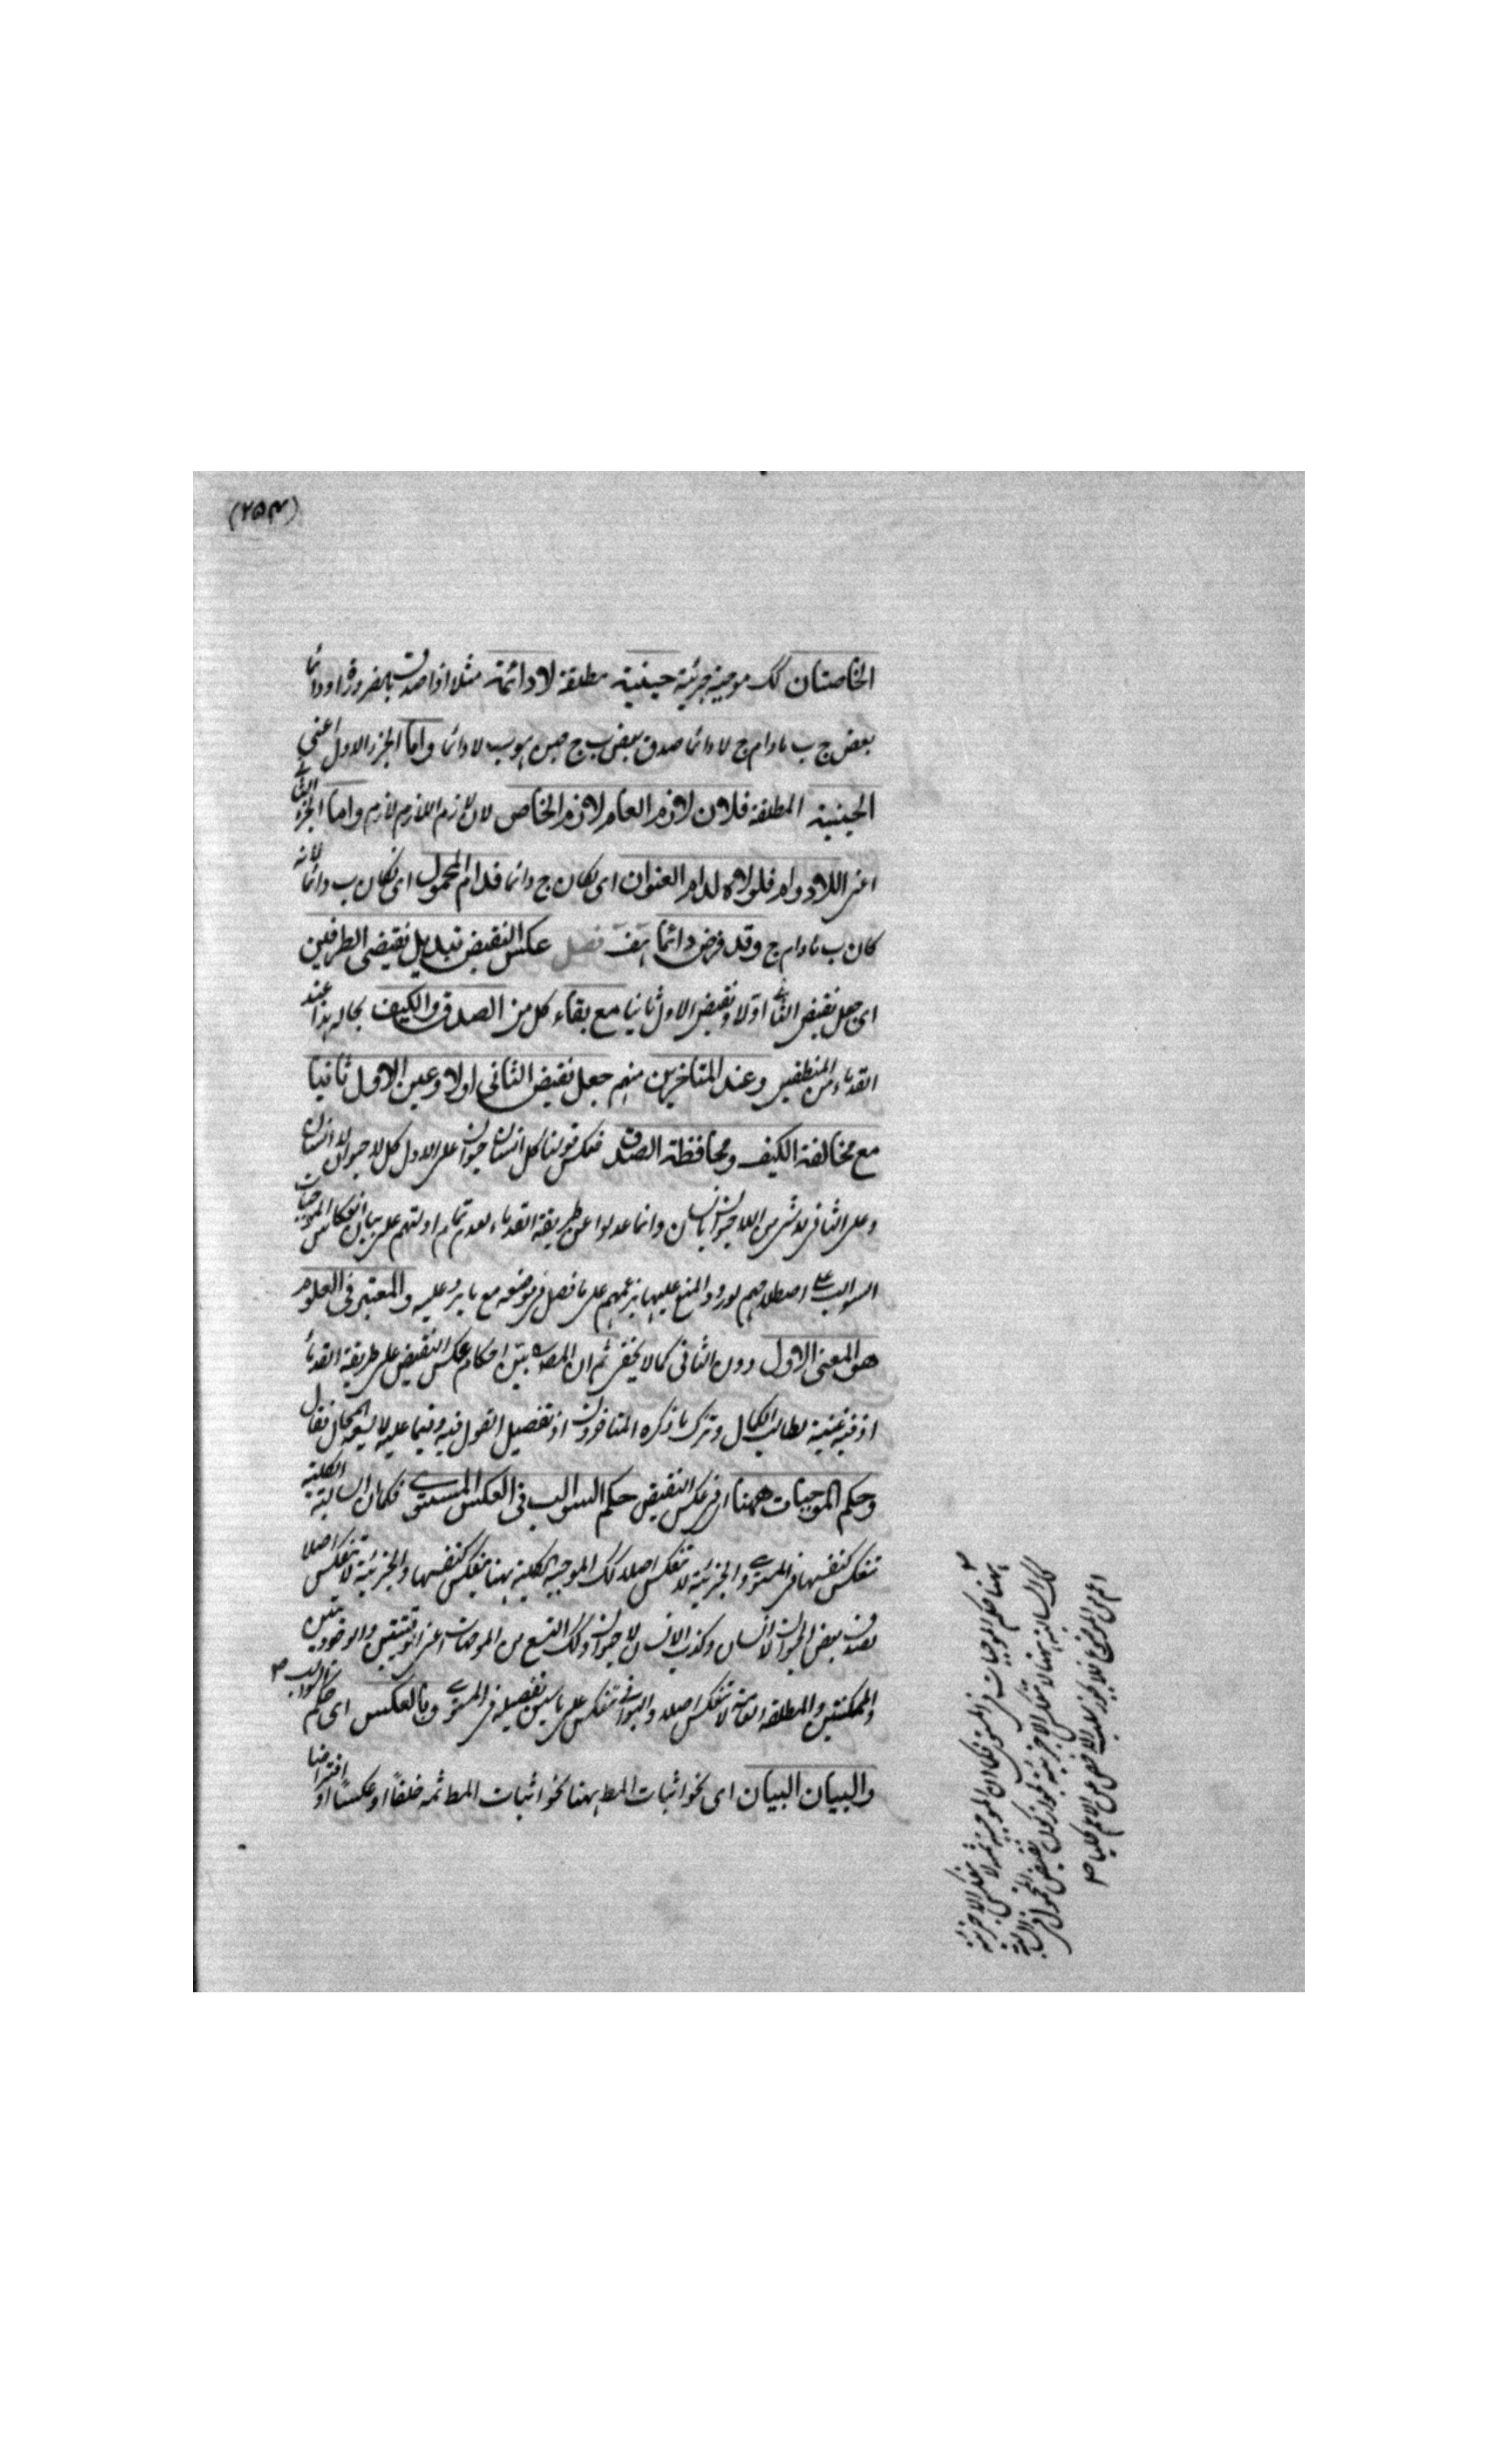 (٢٥٣)
الخاصتان كك موجبة جزئية حينية مطلقة لا دائمة مثلا اذا صدق بالضرورة او دائما
بعض ج ب مادام ج لا دائما صدق بعض ب ج حين هو ب لا دائما واما الجزء الاول اعني
الحينية المطلقة فلان لازم العام لازم الخاص لان لازم اللازم لازم واما الجزء الثاني
اعني اللادوام فلولاه لدام العنوان اى لكان ج دائما فدام المحمول اى لكان ب دائما لانه
كان ب مادام ج وقد فرض لا دائما هف فصل عكس النقيض تبديل نقيضى الطرفين
اى جعل نقيض الثاني اولا ونقيض الاول ثانيا مع بقاء كل من الصدق والكيف بحاله هذا عند
القدماء من المنطقيين وعند المتاخرين منهم جعل نقيض الثانى اولا وعين الاول ثانيا
مع مخالفة الكيف ومحافظة الصدق فعكس قولنا كل انسان حيوان على الاول كل لا حيوان لا انسان
وعلى الثانى لا شئ من اللاحيوان بانسان وانما عدلوا عن طريقة القدماء لعدم تمام ادلتهم على بيان انعكاس الموجبات
السوالب على اصطلاحهم لورود المنع عليها بزعمهم على ما فصل فى موضعه مع ما يرد عليه والمعتبر فى العلوم
هو المعنى الاول دون الثانى كما لا يخفى ثم ان المصنف بين احكام عكس النقيض على طريقة القدماء
اذ فيه غنية لطالب الكمال وترك ما ذكره المتاخرون اذ تفصيل القول فيه وفيما عليه لا يسعه المجال فقال
وحكم الموجبات ههنا اى فى عكس النقيض حكم السوالب فى العكس المستوى فكما ان السالبة الكلية
تنعكس كنفسها فى المستوى والجزئية لا تنعكس اصلا كك الموجبة الكلية ههنا تنعكس كنفسها والجزئية لا تنعكس اصلا
لصدق بعض الحيوان لا انسان وكذب بعض الانسان لا حيوان وكك التسع من الموجهات اعنى الوقتيتين والوجوديتين
والممكنتين والمطلقة العامة لا تنعكس اصلا والبواقى تنعكس على ما سبق تفصيله فى المستوى وبالعكس اى حكم السوالب
والبيان البيان اى نحو اثبات المط ههنا نحو اثبات المط ثمه خلفا او عكسا او افتراضا
ههنا حكم الموجبات فى المستوى فكما ان الموجبة ثمه لا تنعكس الا جزئية
كك السالبة ههنا لا تنعكس الا جزئية لجواز كون نقيض المحمول فى السالبة
اعم من الموضوع فلا يجوز سلب الاخص عن الاعم كليا